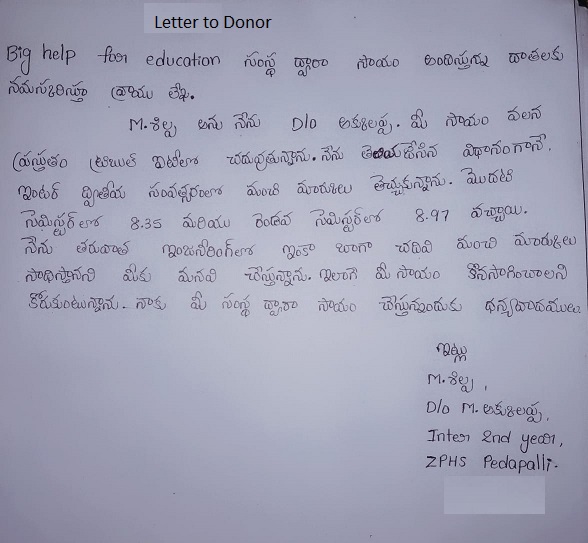 Letter to Donor
Big help for education సంస్థ ద్వారా సాయం అందిస్తున్న దాతలకు
నమస్కరిస్తూ వ్రాయు లేఖ.
M. శిల్ప అను నేను D/o అక్కులప్ప. మీ సాయం వలన
ప్రస్తుతం ట్రిబుల్ ఐటిలో చదువుతున్నాను. నేను తెలియజేసిన విధానంగానే,
ఇంటర్ ద్వితీయ సంవత్సరంలో మంచి మార్కులు తెచ్చుకున్నాను. మొదటి
సెమిస్టర్‌లో 8.35 మరియు రెండవ సెమిస్టర్‌లో 8.97 వచ్చాయి.
నేను తరువాత ఇంజనీరింగ్‌లో ఇంకా బాగా చదివి మంచి మార్కులు
సాధిస్తానని మీకు మనవి చేస్తున్నాను. ఇలాగే మీ సాయం కొనసాగించాలని
కోరుకుంటున్నాను. నాకు మీ సంస్థ ద్వారా సాయం చేస్తున్నందుకు ధన్యవాదములు.
ఇట్లు
M. శిల్ప,
D/o M. అక్కులప్ప,
Inter 2nd year,
ZPHS Pedapalli.